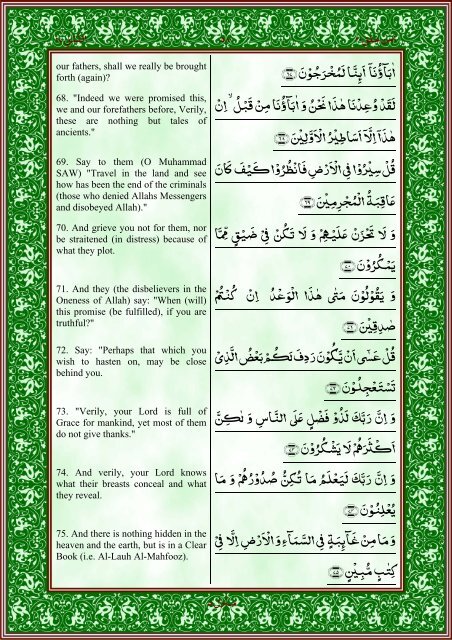 our fathers, shall we really be brought
forth (again)?
68. "Indeed we were promised this,
we and our forefathers before, Verily,
these are nothing but tales of
ancients."
69. Say to them (O Muhammad
SAW) "Travel in the land and see
how has been the end of the criminals
(those who denied Allahs Messengers
and disobeyed Allah)."
70. And grieve you not for them, nor
be straitened (in distress) because of
what they plot.
71. And they (the disbelievers in the
Oneness of Allah) say: "When (will)
this promise (be fulfilled), if you are
truthful?"
72. Say: "Perhaps that which you
wish to hasten on, may be close
behind you.
73. "Verily, your Lord is full of
Grace for mankind, yet most of them
do not give thanks."
74. And verily, your Lord knows
what their breasts conceal and what
they reveal.
75. And there is nothing hidden in the
heaven and the earth, but is in a Clear
Book (i.e. Al-Lauh Al-Mahfooz).
اٰبَآؤُنَاۤ اَئِنَّا لَمُخْرَجُوْنَ
لَقَدْ وُعِدْنَا هٰذَا نَحْنُ وَ اٰبَآؤُنَا مِنْ قَبْلُ ۙ اِنْ
هٰذَاۤ اِلَّاۤ اَسَاطِيْرُ الْاَوَّلِيْنَ
قُلْ سِيْرُوْا فِي الْاَرْضِ فَانْظُرُوْا كَيْفَ كَانَ
عَاقِبَةُ الْمُجْرِمِيْنَ
وَ لَا تَحْزَنْ عَلَيْهِمْ وَ لَا تَكُنْ فِيْ ضَيْقٍ مِّمَّا
يَمْكُرُوْنَ
وَ يَقُوْلُوْنَ مَتٰى هٰذَا الْوَعْدُ اِنْ كُنْتُمْ
صٰدِقِيْنَ
قُلْ عَسٰۤى اَنْ يَّكُوْنَ رَدِفَ لَكُمْ بَعْضُ الَّذِيْ
تَسْتَعْجِلُوْنَ
وَ اِنَّ رَبَّكَ لَذُوْ فَضْلٍ عَلَى النَّاسِ وَ لٰكِنَّ
اَكْثَرَهُمْ لَا يَشْكُرُوْنَ
وَ اِنَّ رَبَّكَ لَيَعْلَمُ مَا تُكِنُّ صُدُوْرُهُمْ وَ مَا
يُعْلِنُوْنَ
وَ مَا مِنْ غَآئِبَةٍ فِي السَّمَآءِ وَ الْاَرْضِ اِلَّا فِيْ
كِتٰبٍ مُّبِيْنٍ